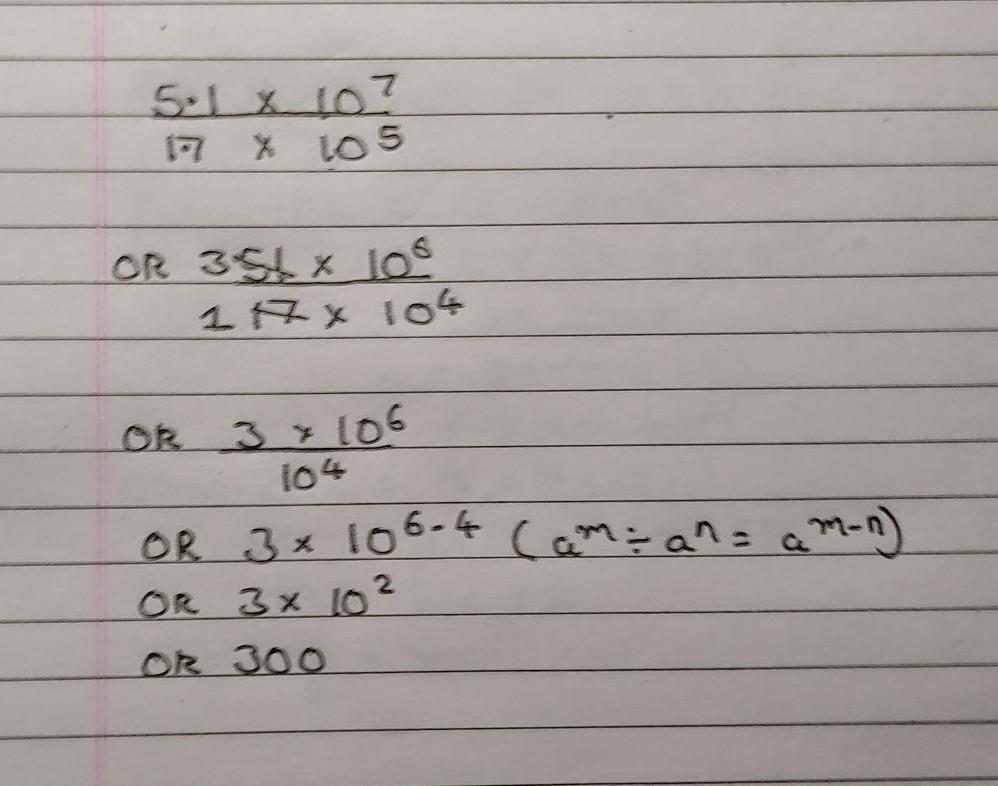 5.1 × 10⁷
1.7 × 10⁵
OR 3 51 × 10⁶
1 17 × 10⁴
OR 3 × 10⁶
10⁴
OR 3 × 10⁶⁻⁴ (aᵐ ÷ aⁿ = aᵐ⁻ⁿ)
OR 3 × 10²
OR 300